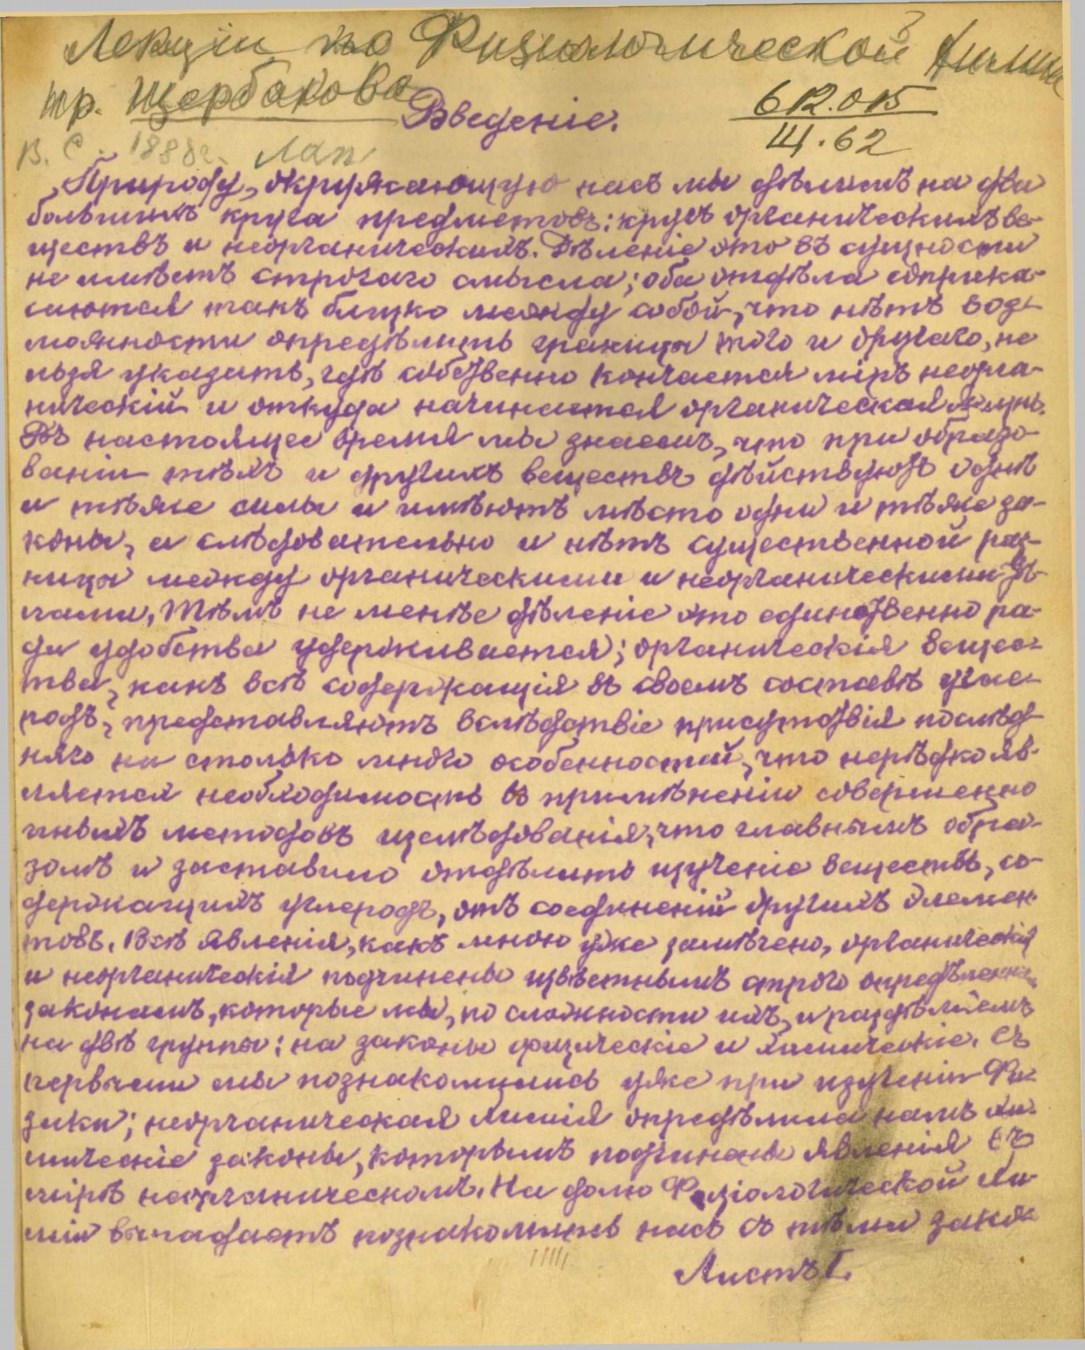 Лекціи по Физиологической Химіи
пр. Щербакова
Введеніе.
612.015
Щ. 62
В. С. 1888г.
Природу, окружающую насъ мы дѣлимъ на два
большихъ круга предметовъ: кругъ органическихъ ве-
ществъ и неорганическихъ. Дѣленіе это въ сущности
не имѣетъ строгаго смысла; оба отдѣла соприка-
саются такъ близко между собой, что нѣтъ воз-
можности опредѣлить границы того и другаго, не
льзя указать, гдѣ собственно кончается міръ неорга-
ническій и откуда начинается органическая жизнь.
Въ настоящее время мы знаемъ, что при образо-
ваніи тѣхъ и другихъ веществъ дѣйствуютъ однѣ
и тѣже силы и имѣютъ мѣсто одни и тѣже за-
коны, а слѣдовательно и нѣтъ существенной раз-
ницы между органическими и неорганическими тѣ-
лами. Тѣмъ не менѣе дѣленіе это единственно ра-
ди удобства удерживается; органическія вещес-
тва, какъ всѣ содержащія въ своемъ составѣ угле-
родъ, представляютъ вслѣдствіе присутствія послѣд-
няго на столько много особенностей, что нерѣдко яв-
ляется необходимость въ примѣненіи совершенно
иныхъ методовъ изслѣдованія, что главнымъ обра-
зомъ и заставило отдѣлить изученіе веществъ, со-
держащихъ углеродъ, отъ соединеній другихъ элемен-
товъ. Всѣ явленія, какъ мною уже замѣчено, органическія
и неорганическія подчинены извѣстнымъ строго опредѣленнымъ
законамъ, которые мы, по сложности ихъ, и раздѣляемъ
на двѣ группы: на законы физическіе и химическіе. Съ
первыми мы познакомились уже при изученіи Фи-
зики; неорганическая химія опредѣлила намъ хи-
мическіе законы, которымъ подчинены явленія въ
мірѣ неорганическомъ. На долю Физіологической Хи-
міи выпадаетъ познакомить насъ съ тѣми зако-
Листъ 1.